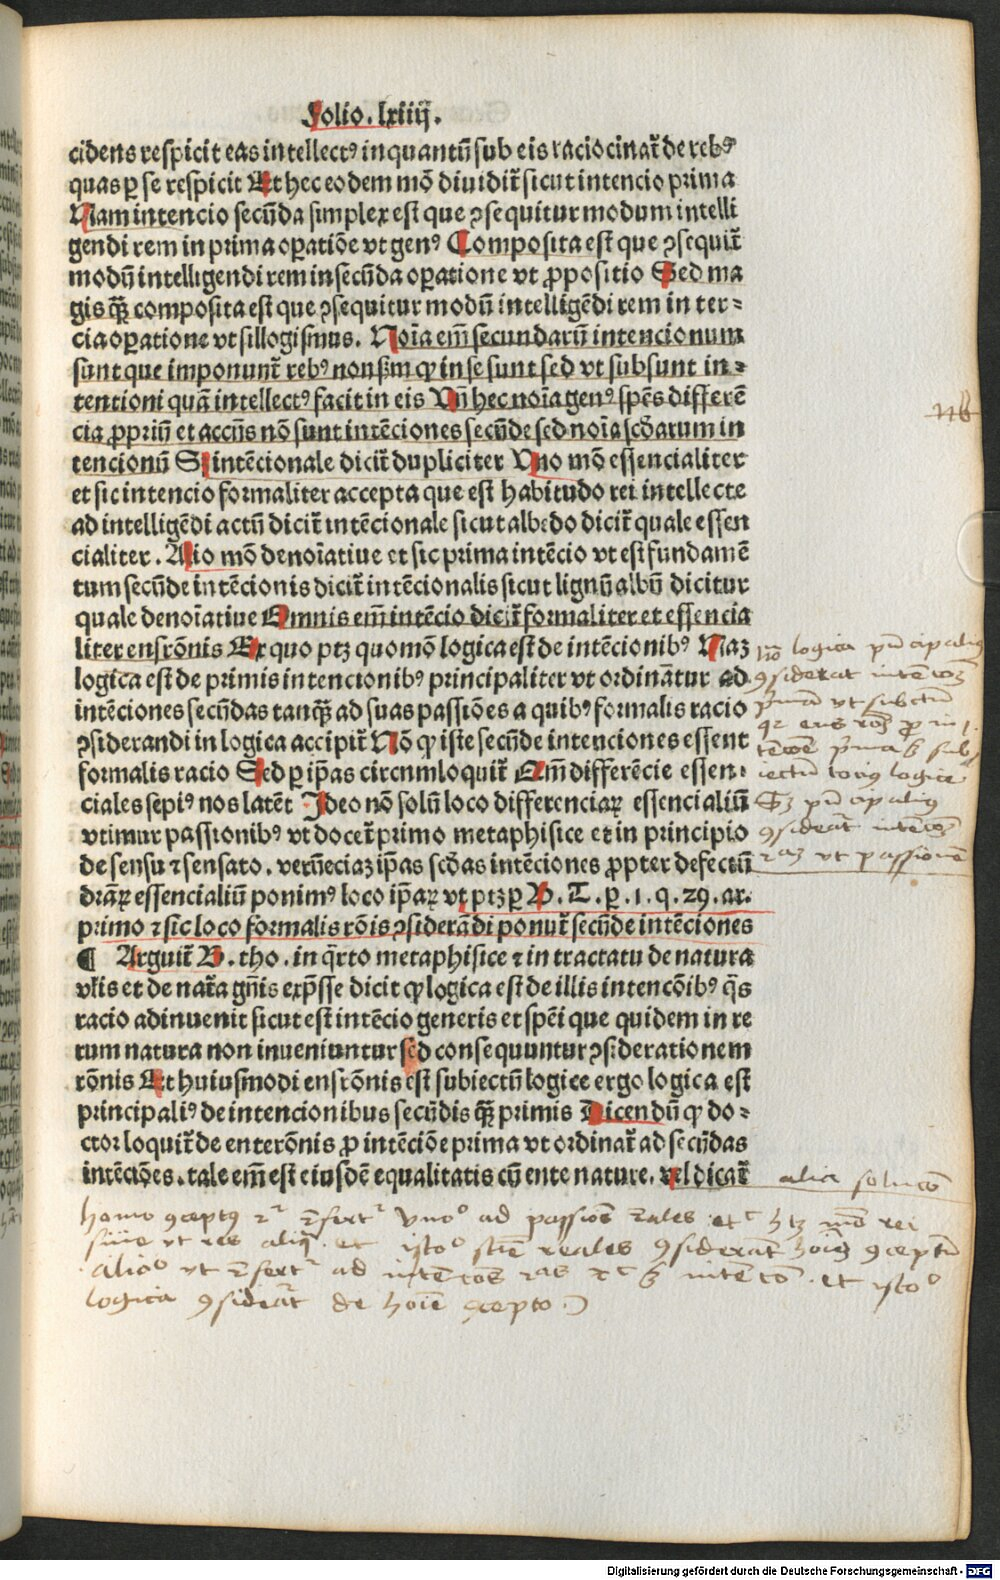 Folio. lxiiij.
cidens respicit eas intellectꝰ inquantū sub eis raciocinat̄ de rebꝰ
quas ꝑ se respicit Et hec eodem mō diuidit̄ sicut intencio prima
Nam intencio secūda simplex est que ꝯsequitur modum intelli
gendi rem in prima oꝑatiōe vt genꝰ Composita est que ꝯsequit̄
modū intelligendi rem in secūda oꝑatione vt ꝓpositio Sed ma
gis qꝫ̄ composita est que ꝯsequitur modū intelligēdi rem in ter⸗
cia oꝑatione vt sillogismus. Noīa em̄ secundarū intencionum
sunt que imponunt̄ rebꝰ non ẜm ꝙ in se sunt sed vt subsunt in⸗
tentioni quā intellectꝰ facit in eis Vn̄ hec noīa genꝰ spēs differē
cia ꝓpriū et accn̄s nō sunt intēciones secūde sed noīa scd̄arum in
tencionū Sꝫ intēcionale dicit̄ dupliciter Vno mō essencialiter
et sic intencio formaliter accepta que est habitudo rei intellecte
ad intelligēdi actū dicit̄ intēcionale sicut albedo dicit̄ quale essen
cialiter. Alio mō denoīatiue et sic prima intēcio vt est fundamē
tum secūde intēcionis dicit̄ intēcionalis sicut lignū albū dicitur
quale denoīatiue Omnis em̄ intēcio dicit̄ formaliter et essencia
liter ens rōnis Ex quo ptꝫ quomō logica est de intēcionibꝰ Naꝫ
logica est de primis intencionibꝰ principaliter vt ordinātur ad
intēciones secūdas tanqꝫ̄ ad suas passiōes a quibꝰ formalis racio
ꝯsiderandi in logica accipit̄ Nō ꝙ iste secūde intenciones essent
formalis racio Sed ꝑ ip̄as circumloquit̄ Em̄ differēcie essen⸗
ciales sepiꝰ nos latēt Ideo nō solū loco differenciaꝝ essencialiū
vtimur passionibꝰ vt docet̄ primo metaphisice et in principio
de sensu ⁊ sensato. verū eciaꝫ ip̄as scd̄as intēciones ꝓpter defectū
dr̄aꝝ essencialiū ponimꝰ loco ip̄aꝝ vt ptꝫ ꝑ B. T. p. 1. q. 29. ar.
primo ⁊ sic loco formalis rōis ꝯsiderādi ponūt̄ secūde intēciones
¶ Arguit̄ B. tho. in q̄rto metaphisice ⁊ in tractatu de natura
vl̄is et de nat̄a gn̄is exp̄sse dicit ꝙ logica est de illis intencōibꝰ q̄s
racio adinuenit sicut est intēcio generis et spēi que quidem in re
rum natura non inueniuntur sed consequuntur ꝯsiderationem
rōnis Et huiusmodi ens rōnis est subiectū logice ergo logica est
principaliꝰ de intencionibus secūdis qꝫ̄ primis Dicendū ꝙ do⸗
ctor loquit̄ de ente rōnis ꝓ intēciōe prima vt ordinat̄ ad secūdas
intēciōes. tale em̄ est eiusdē equalitatis cū ente nature. vel dicat̄
nB
logica
ꝯsiderat
vt passionē
alia
homo ꝯceptꝰ
ad passiōs
vt res
reales ꝯsiderāt
vt
ad
logica ꝯsiderat de hoīe ꝯcepto
Digitalisierung gefördert durch die Deutsche Forschungsgemeinschaft - DFG